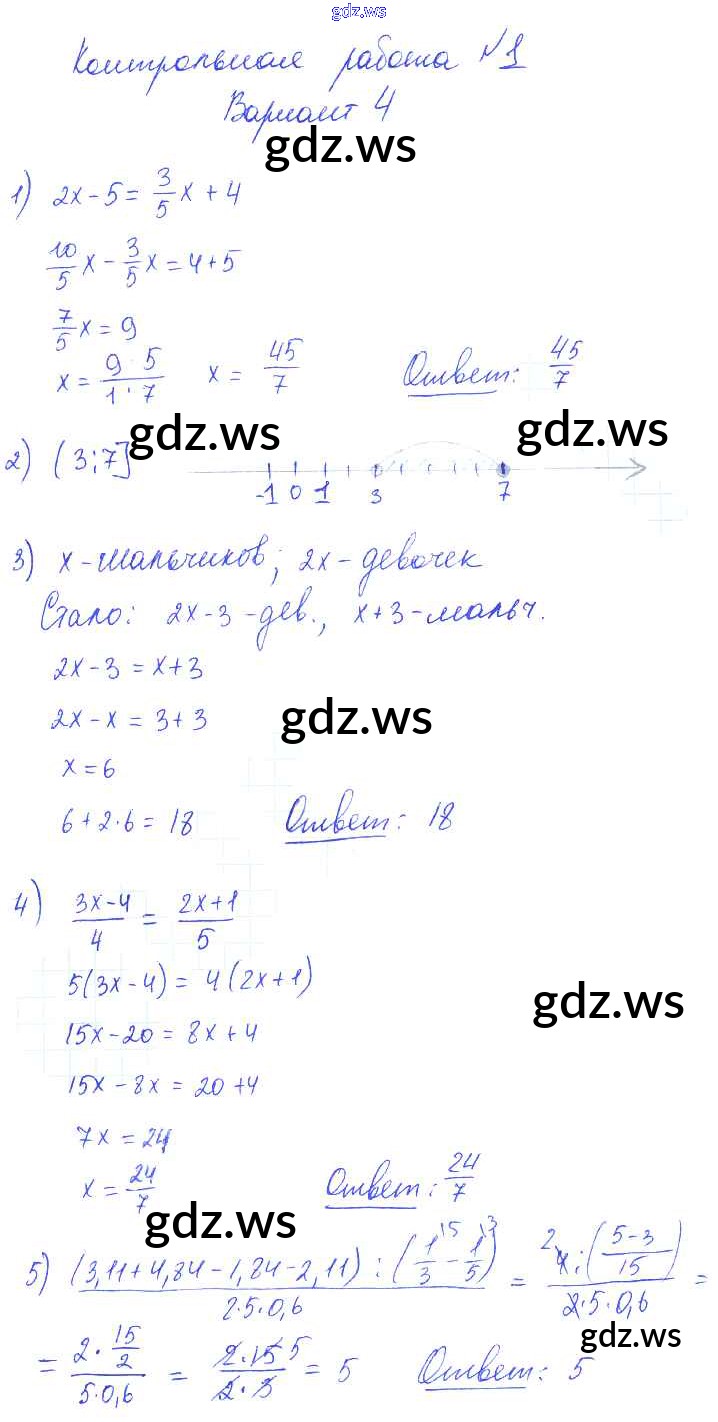 gdz.ws
Контрольная работа №1
Вариант 4
gdz.ws
1) 2x - 5 = 3/5 x + 4
10/5 x - 3/5 x = 4 + 5
7/5 x = 9
x = 9·5/1·7   x = 45/7   Ответ: 45/7
gdz.ws gdz.ws
2) (3; 7]
-1 0 1 3 7
3) x - мальчиков; 2x - девочек
Стало: 2x - 3 - дев., x + 3 - мальч.
2x - 3 = x + 3
gdz.ws
2x - x = 3 + 3
x = 6
6 + 2·6 = 18   Ответ: 18
4) (3x-4)/4 = (2x+1)/5
5(3x - 4) = 4(2x + 1)
gdz.ws
15x - 20 = 8x + 4
15x - 8x = 20 + 4
7x = 24
x = 24/7   Ответ: 24/7
gdz.ws
5) (3,11 + 4,84 - 1,84 - 2,11) : (1/3 - 1/5) / 2·5·0,6 = 4 : ((5-3)/15) / 2·5·0,6 =
gdz.ws
= 2·15/2 / 5·0,6 = 2·15/2·3 = 5   Ответ: 5